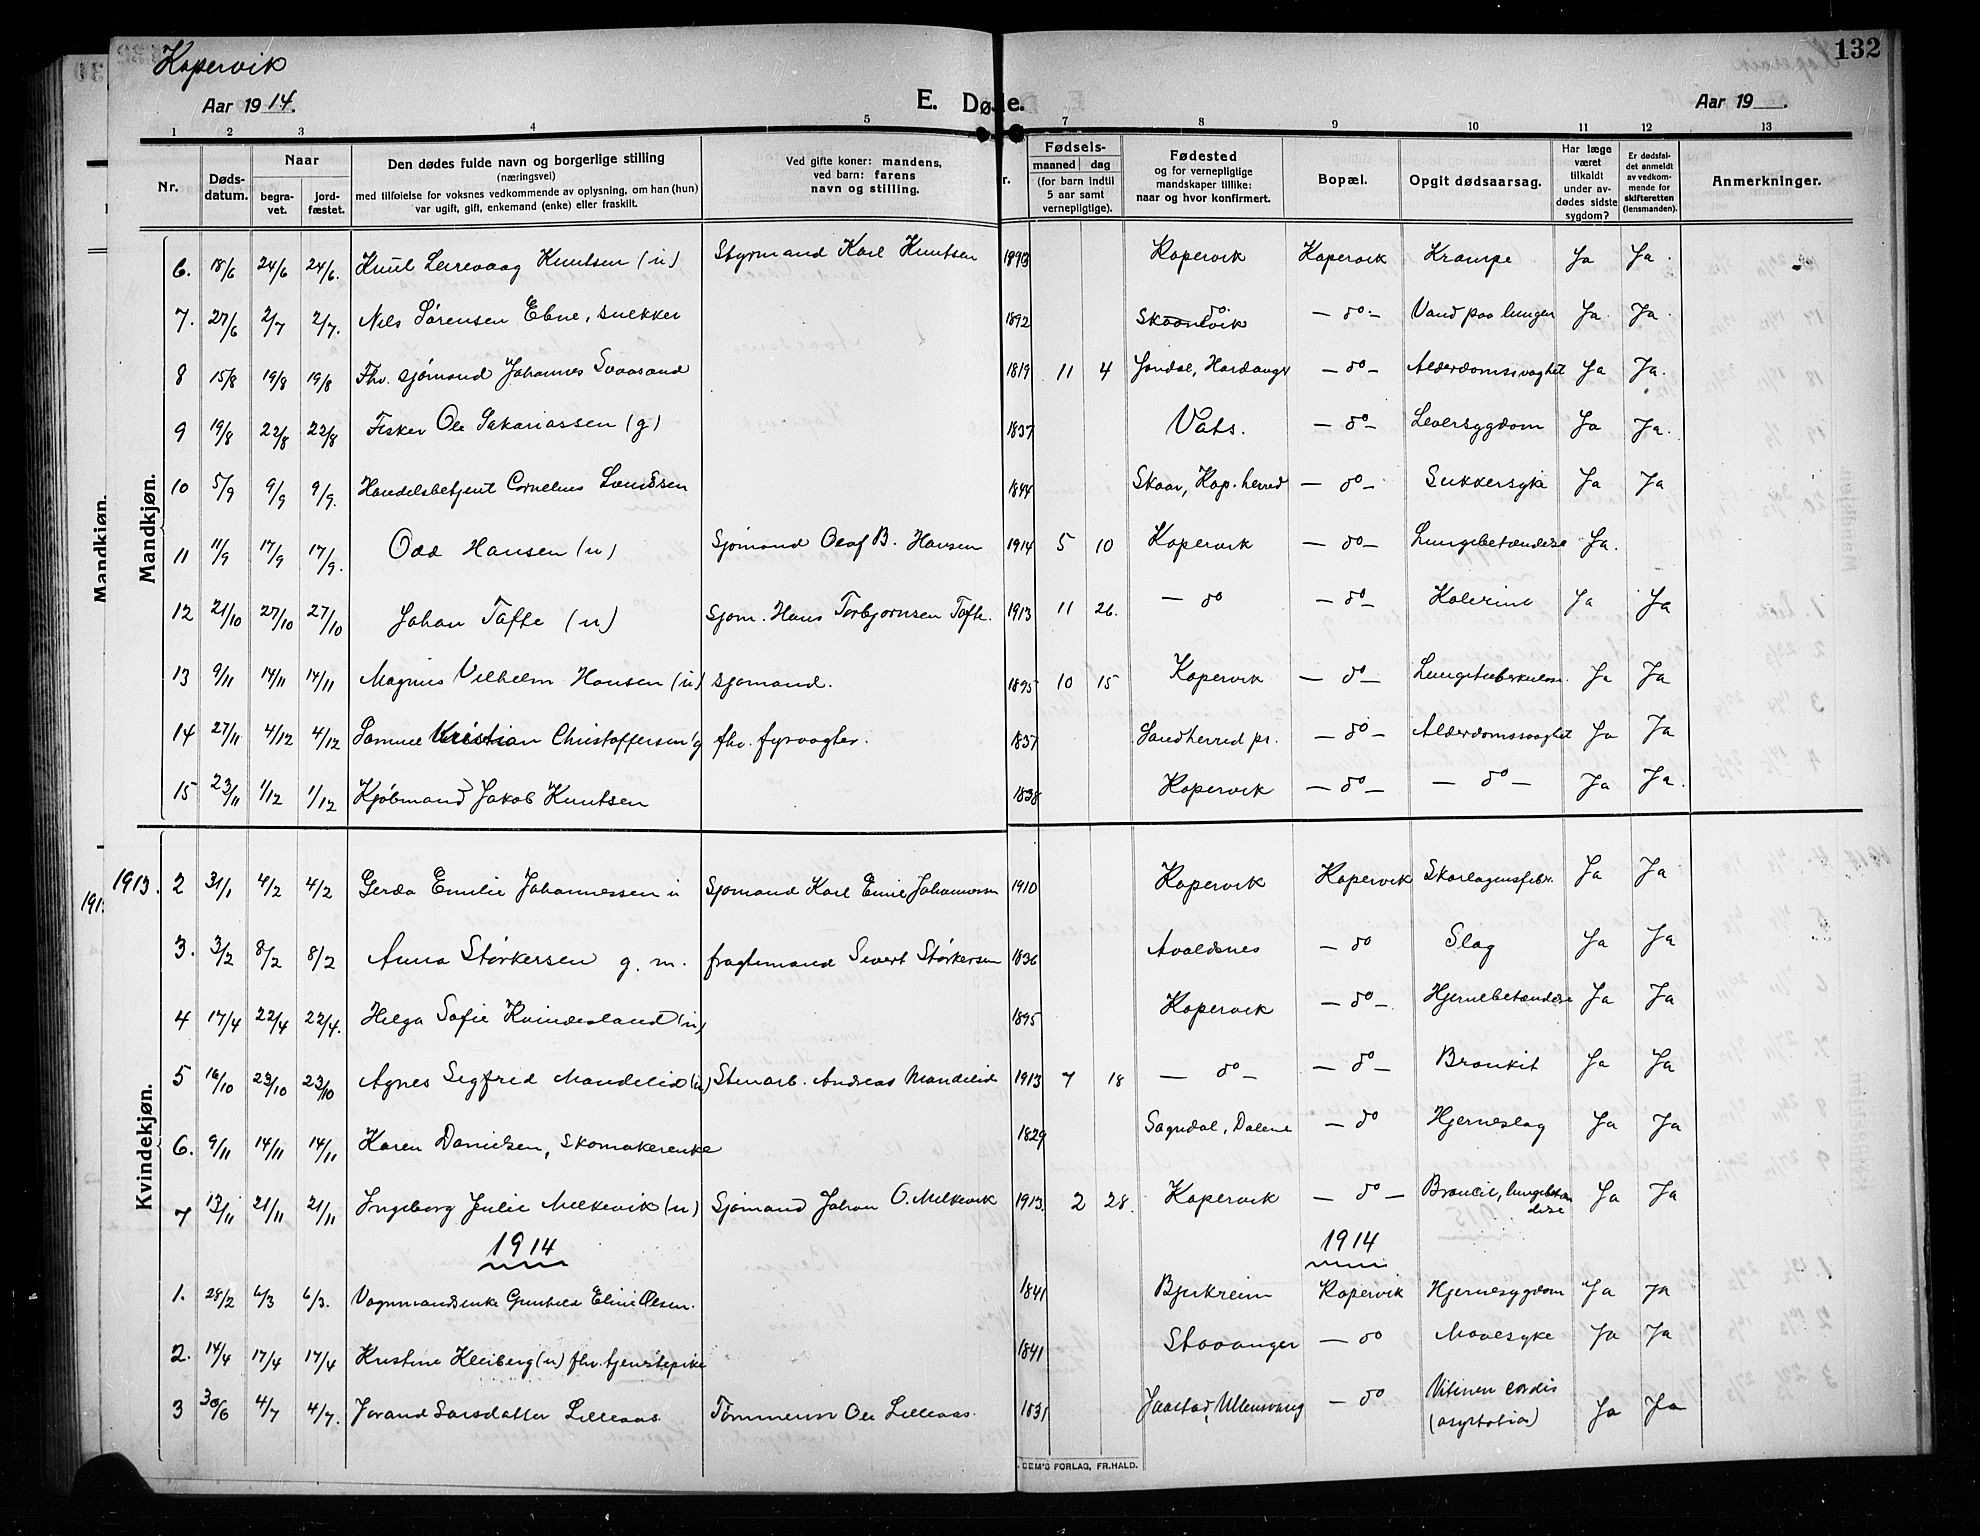 Kopervik
132
Aar 1914.
E. Døde.
Aar 19
1 2 3 4 5 7 8 9 10 11 12 13
Nr. | Dødsdatum. | Naar begravet. | jordfæstet. | Den dødes fulde navn og borgerlige stilling (næringsvei) med tilføielse for voksnes vedkommende av oplysning, om han (hun) var ugift, gift, enkemand (enke) eller fraskilt. | Ved gifte koner: mandens, ved barn: farens navn og stilling. | Fødsels- maaned dag (for barn indtil 5 aar samt vernepligtige). | Fødested og for vernepligtige mandskaper tillike: naar og hvor konfirmert. | Bopæl. | Opgit dødsaarsag. | Har læge været tilkaldt under avdødes sidste sygdom? | Er dødsfaldet anmeldt av vedkommende for skifteretten (lensmanden). | Anmerkninger.
Mandkjøn.
6. 18/6 24/6 24/6. Knut Leirevaag Knutsen (u) Styrmand Karl Knutsen 1893 Kopervik Kopervik Krampe Ja Ja.
7. 27/6 2/7 2/7. Nils Sørensen Ebne, snekker 1892 Skaanevik do. — do — Vand paa lungen Ja Ja.
8 15/8 19/8 19/8 Fhv. sjømand Johannes Svaasand 1819 11 4 Jondal, Hardanger — do — Alderdomssvaghet Ja Ja.
9 19/8 22/8 22/8 Fisker Ole Sakariassen (g) 1837 Vats. — do — Leversygdom Ja Ja.
10 5/9 9/9 9/9. Handelsbetjent Cornelius 1844 Skaar, Kop. herred — do — Sukkersyke Ja Ja
11 11/9 17/9 17/9. Odd Hansen (u) Sjømand Olaf B. Hansen 1914 5 10 Kopervik — do — Lungebetændelse Ja.
12 21/10 27/10 27/10 Johan Tofte (u) Sjøm. Hans Torbjørnsen Tofte. 1913 11 26. — do — do — Kolerine Ja Ja
13 9/11 14/11 14/11 Magnus Vilhelm Hansen (u) sjømand. 1895 10 15 Kopervik — do — Lungetuberkulose. Ja Ja
14 27/11 4/12 4/12 Samuel Kristian Christoffersen (g fhv. fyrvogter. 1837 Sandherred pr. — do — Alderdomssvaghet Ja Ja
15 23/11 1/12 1/12 Kjøbmand Jakob Knutsen 1838 Kopervik — do — — do — Ja Ja.
Kvindekjøn.
1913. 2 31/1 4/2 4/2 Gerda Emilie Johannessen u Sjømand Karl Emil Johannessen 1910 Kopervik Kopervik Skarlagensfeber. Ja Ja
3. 3/2 8/2 8/2 Anna Størkersen g. m. fragtemand Sivert Størkersen 1836 Avaldsnes — do Slag Ja Ja
4 17/4 22/4 22/4. Helga Sofie Kvindesland (u) 1895 Kopervik — do — Hjernebetændelse Ja Ja
5 16/10 23/10 23/10 Agnes Sigfrid Mandelid (u) Stenarb. Andreas Mandelid 1913 7 18 — do — — do — Bronkit Ja Ja
6. 9/11 14/11 14/11 Karen Danielsen, Skomakerenke 1829 Sogndal, Dalene — do Hjerneslag Ja Ja
7 13/11 21/11 21/11 Ingeborg Julie Melkevik (u) Sjømand Johan O. Melkevik 1913. 2 28. Kopervik — do — lungebetændelse Ja Ja
1914 1914
1. 28/2 6/3 6/3. Vognmandsenke Gunhild Eline Olsen. 1841 Bjerkreim Kopervik Hjernesygdom Ja Ja
2. 14/4 17/4 17/4 Kristine Kleiberg (u) fhv. tjenstepike 1841 Stavanger — do Mavesyke Ja Ja
3 30/6 4/7 4/7. Jorand Larsdatter Lilleaas. Tømmerm Ole Lilleaas. 1831 Jaastad, Ullensvang — do Vitium cordis Ja Ja
DEM'S FORLAG, FR.HALD.